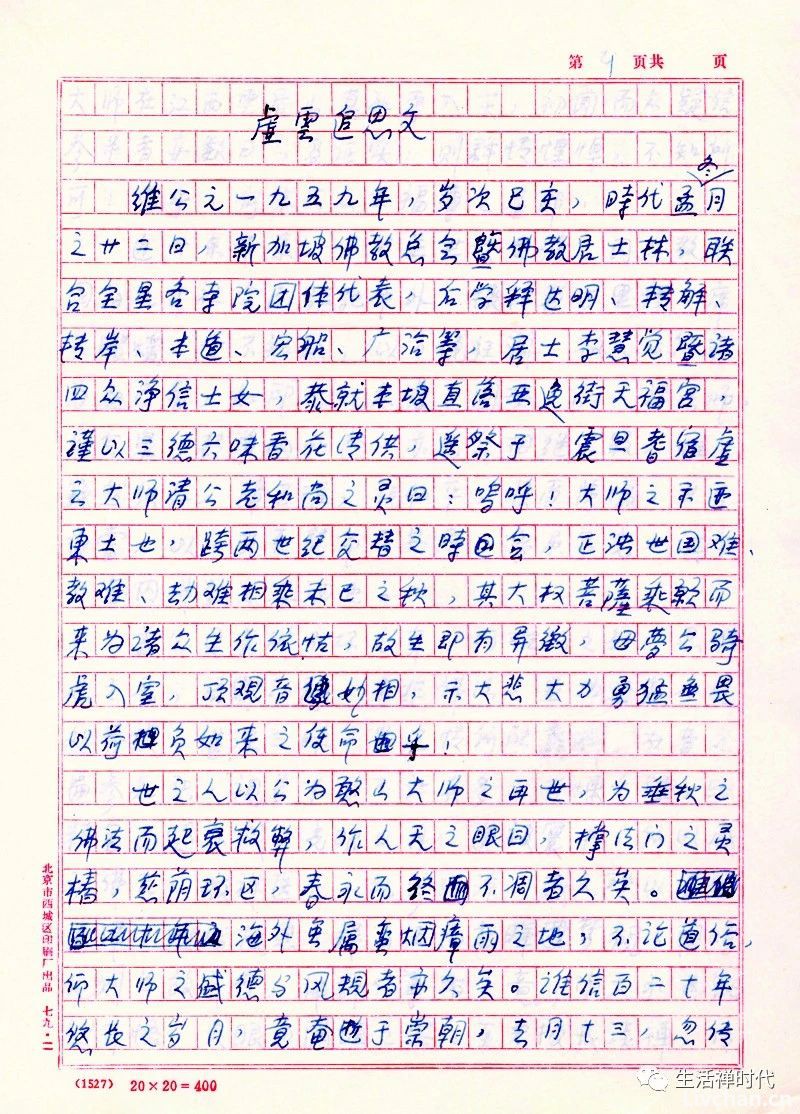 第 9 页共 页
虚雲追思文
冬
維公元一九五九年，岁次已亥，時代孟月
之廿二日，新加坡佛教总会暨佛教居士林，联
合全星各寺院团体代表，后学释达明、转解、
转岸、本道、宏船、广洽等，居士李慧觉暨诸
四众净信士女，恭就本坡直落亚逸街天福宫，
謹以三德六味香花清供，遥祭于 震旦耆宿虚
云大师清公老和尚之灵曰：嗚呼！大师之示迹
東土也，跨两世纪交替之時会，正法世国难、
教难、劫难相乘未已之秋，其大权菩薩乘願而
来为诸众生作依怙，故生即有异徵，母夢公骑
虎入室，顶观音妙相，示大悲大力勇猛無畏
以荷担负如来之使命乎！
世之人以公为憨山大师之再世，为垂秋之
佛法而起衰救弊，作人天之眼目，撑法门之灵
椿，慈荫环区，春永而终不凋者久矣。
海外虽属蛮烟瘴雨之地，不论道俗，
仰大师之盛德与风規者亦久矣。谁信百二十年
悠长之岁月，竟奄逝于崇朝，去月十三，忽传
北京市西城区印刷厂出品 七九·二
(1527) 20×20=400
生活禅时代